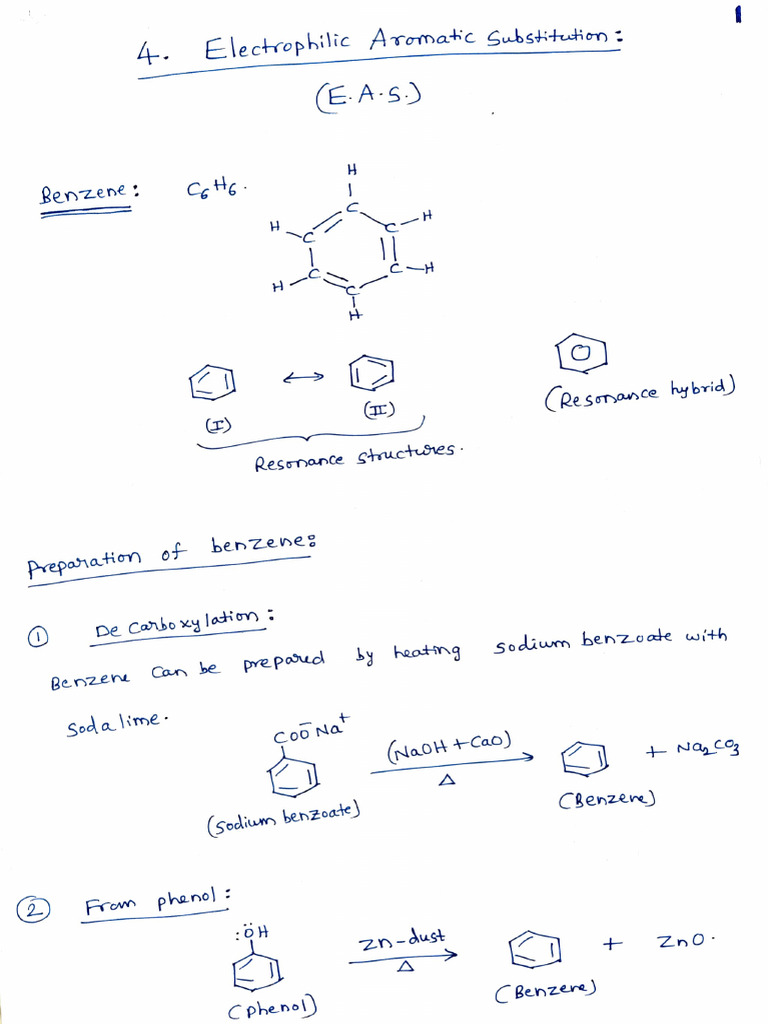 1
4. Electrophilic Aromatic Substitution:
(E.A.S.)
Benzene: C6H6.
H
C
H C C H
H C C H
C
H
(I) ↔ (II)
(Resonance hybrid)
Resonance structures.
Preparation of benzene:
① Decarboxylation:
Benzene can be prepared by heating sodium benzoate with
sodalime.
COO⁻Na⁺
(NaOH + CaO)
Δ
+ Na2CO3
(sodium benzoate)
(Benzene)
② From phenol:
:ÖH
Zn-dust
Δ
+ ZnO.
(phenol)
(Benzene)